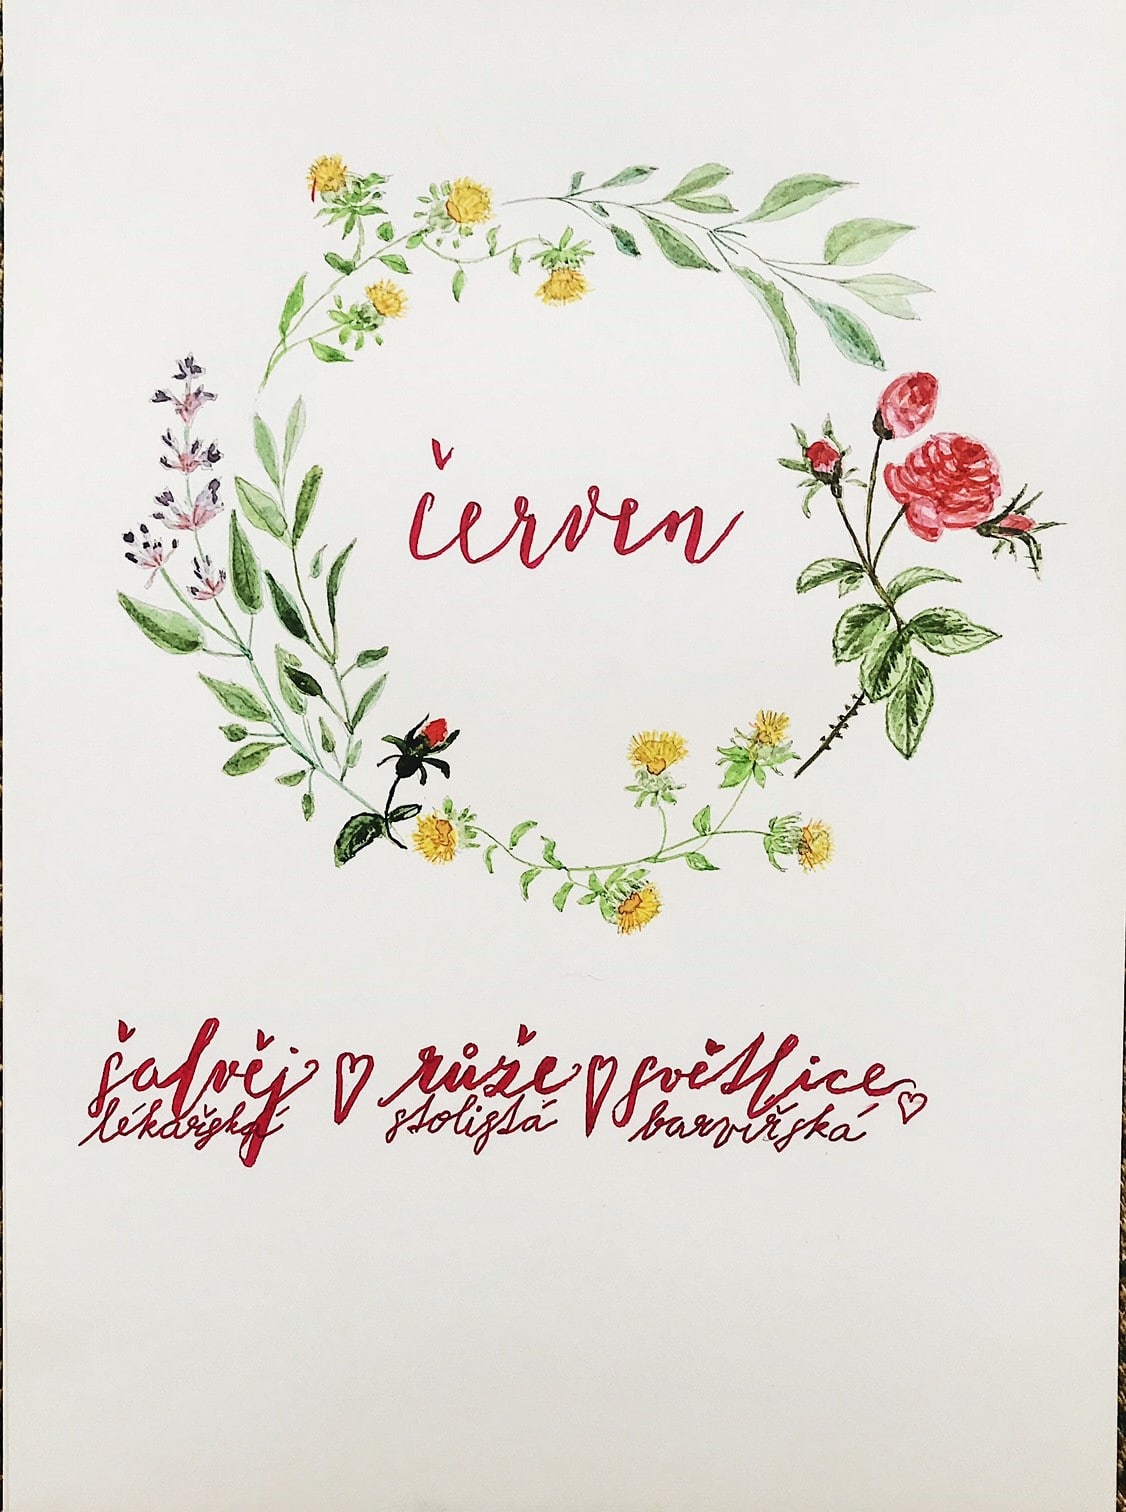 červen
šalvěj ♡ růže ♡ světlice ♡
lékařská stolistá barvířská